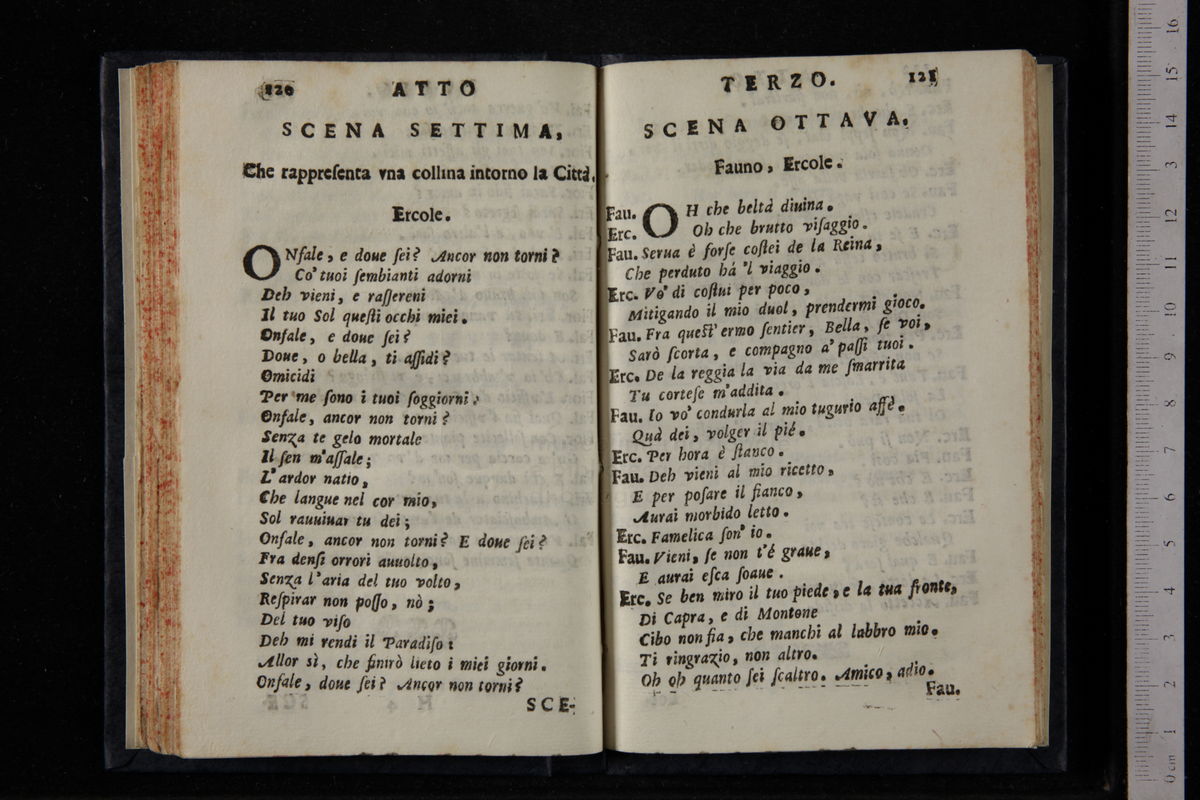 120 ATTO
SCENA SETTIMA,
Che rappreſenta vna collina intorno la Città.
Ercole.
ONfale, e doue ſei? Ancor non torni?
Co' tuoi ſembianti adorni
Deh vieni, e raſſereni
Il tuo Sol queſti occhi miei.
Onfale, e doue ſei?
Doue, o bella, ti aſſidi?
Omicidi
Per me ſono i tuoi ſoggiorni.
Onfale, ancor non torni?
Senza te gelo mortale
Il ſen m'aſſale;
L'ardor natio,
Che langue nel cor mio,
Sol rauuiuar tu dei;
Onfale, ancor non torni? E doue ſei?
Fra denſi orrori auuolto,
Senza l'aria del tuo volto,
Reſpirar non poſſo, nò;
Del tuo viſo
Deh mi rendi il Paradiſo:
Allor sì, che finirò lieto i miei giorni.
Onfale, doue ſei? Ancor non torni?
SCE-
TERZO. 121
SCENA OTTAVA.
Fauno, Ercole.
Fau. OH che beltà diuina.
Erc. Oh che brutto viſaggio.
Fau. Serua è forſe coſtei de la Reina,
Che perduto há 'l viaggio.
Erc. Vo' di coſtui per poco,
Mitigando il mio duol, prendermi gioco.
Fau. Fra queſt'ermo ſentier, Bella, ſe voi,
Sarò ſcorta, e compagno a' paſſi tuoi.
Erc. De la reggia la via da me ſmarrita
Tu corteſe m'addita.
Fau. Io vo' condurla al mio tugurio affè.
Quà dei, volger il piè.
Erc. Per hora è ſtanco.
Fau. Deh vieni al mio ricetto,
E per poſare il fianco,
Aurai morbido letto.
Erc. Famelica ſon' io.
Fau. Vieni, ſe non t'é graue,
E aurai eſca ſoaue.
Erc. Se ben miro il tuo piede, e la tua fronte,
Di Capra, e di Montone
Cibo non fia, che manchi al labbro mio.
Ti ringrazio, non altro.
Oh oh quanto ſei ſcaltro. Amico, adio.
Fau.
0 cm 1 2 3 4 5 6 7 8 9 10 11 12 13 14 15 16